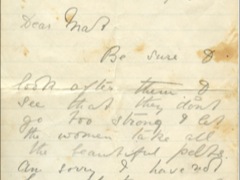 Dear Mat
Be sure &
look after them &
see that they don't
go too strong & let
the women take all
the beautiful pelts.
Am sorry I have not